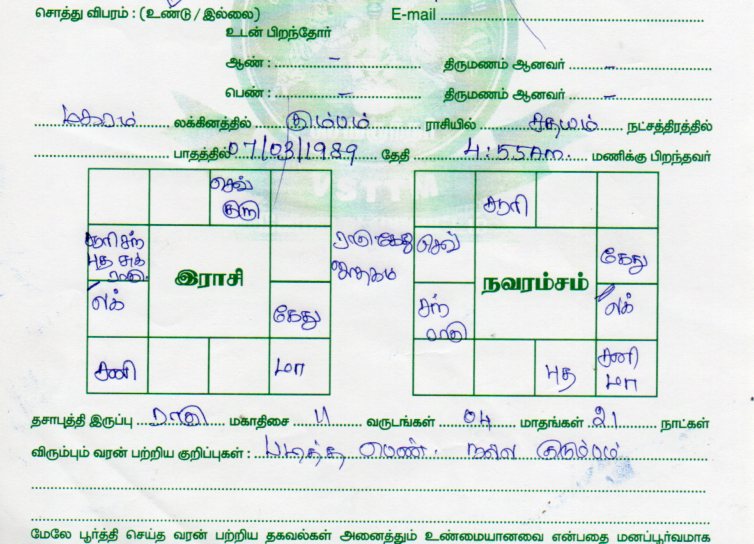 சொத்து விபரம் : (உண்டு / இல்லை) E-mail
உடன் பிறந்தோர்
ஆண் : – திருமணம் ஆனவர் –
பெண் : – திருமணம் ஆனவர் –
மகரம் லக்கினத்தில் கும்பம் ராசியில் சதயம் நட்சத்திரத்தில்
பாதத்தில் 07/03/1989 தேதி 4:55Am. மணிக்கு பிறந்தவர்
செவ்
குரு
சூரி
சூரி சந்
புத சுக்
ராகு
இராசி
ராகு கேது
ஜாதகம்
செவ்
நவரம்சம்
கேது
லக்
கேது
சந்
ராகு
லக்
சனி
மா
புத
சனி
மா
தசாபுத்தி இருப்பு ராகு மகாதிசை 11 வருடங்கள் 04 மாதங்கள் 21 நாட்கள்
விரும்பும் வரன் பற்றிய குறிப்புகள் : படித்த பெண். நல்ல குடும்பம்
மேலே பூர்த்தி செய்த வரன் பற்றிய தகவல்கள் அனைத்தும் உண்மையானவை என்பதை மனப்பூர்வமாக